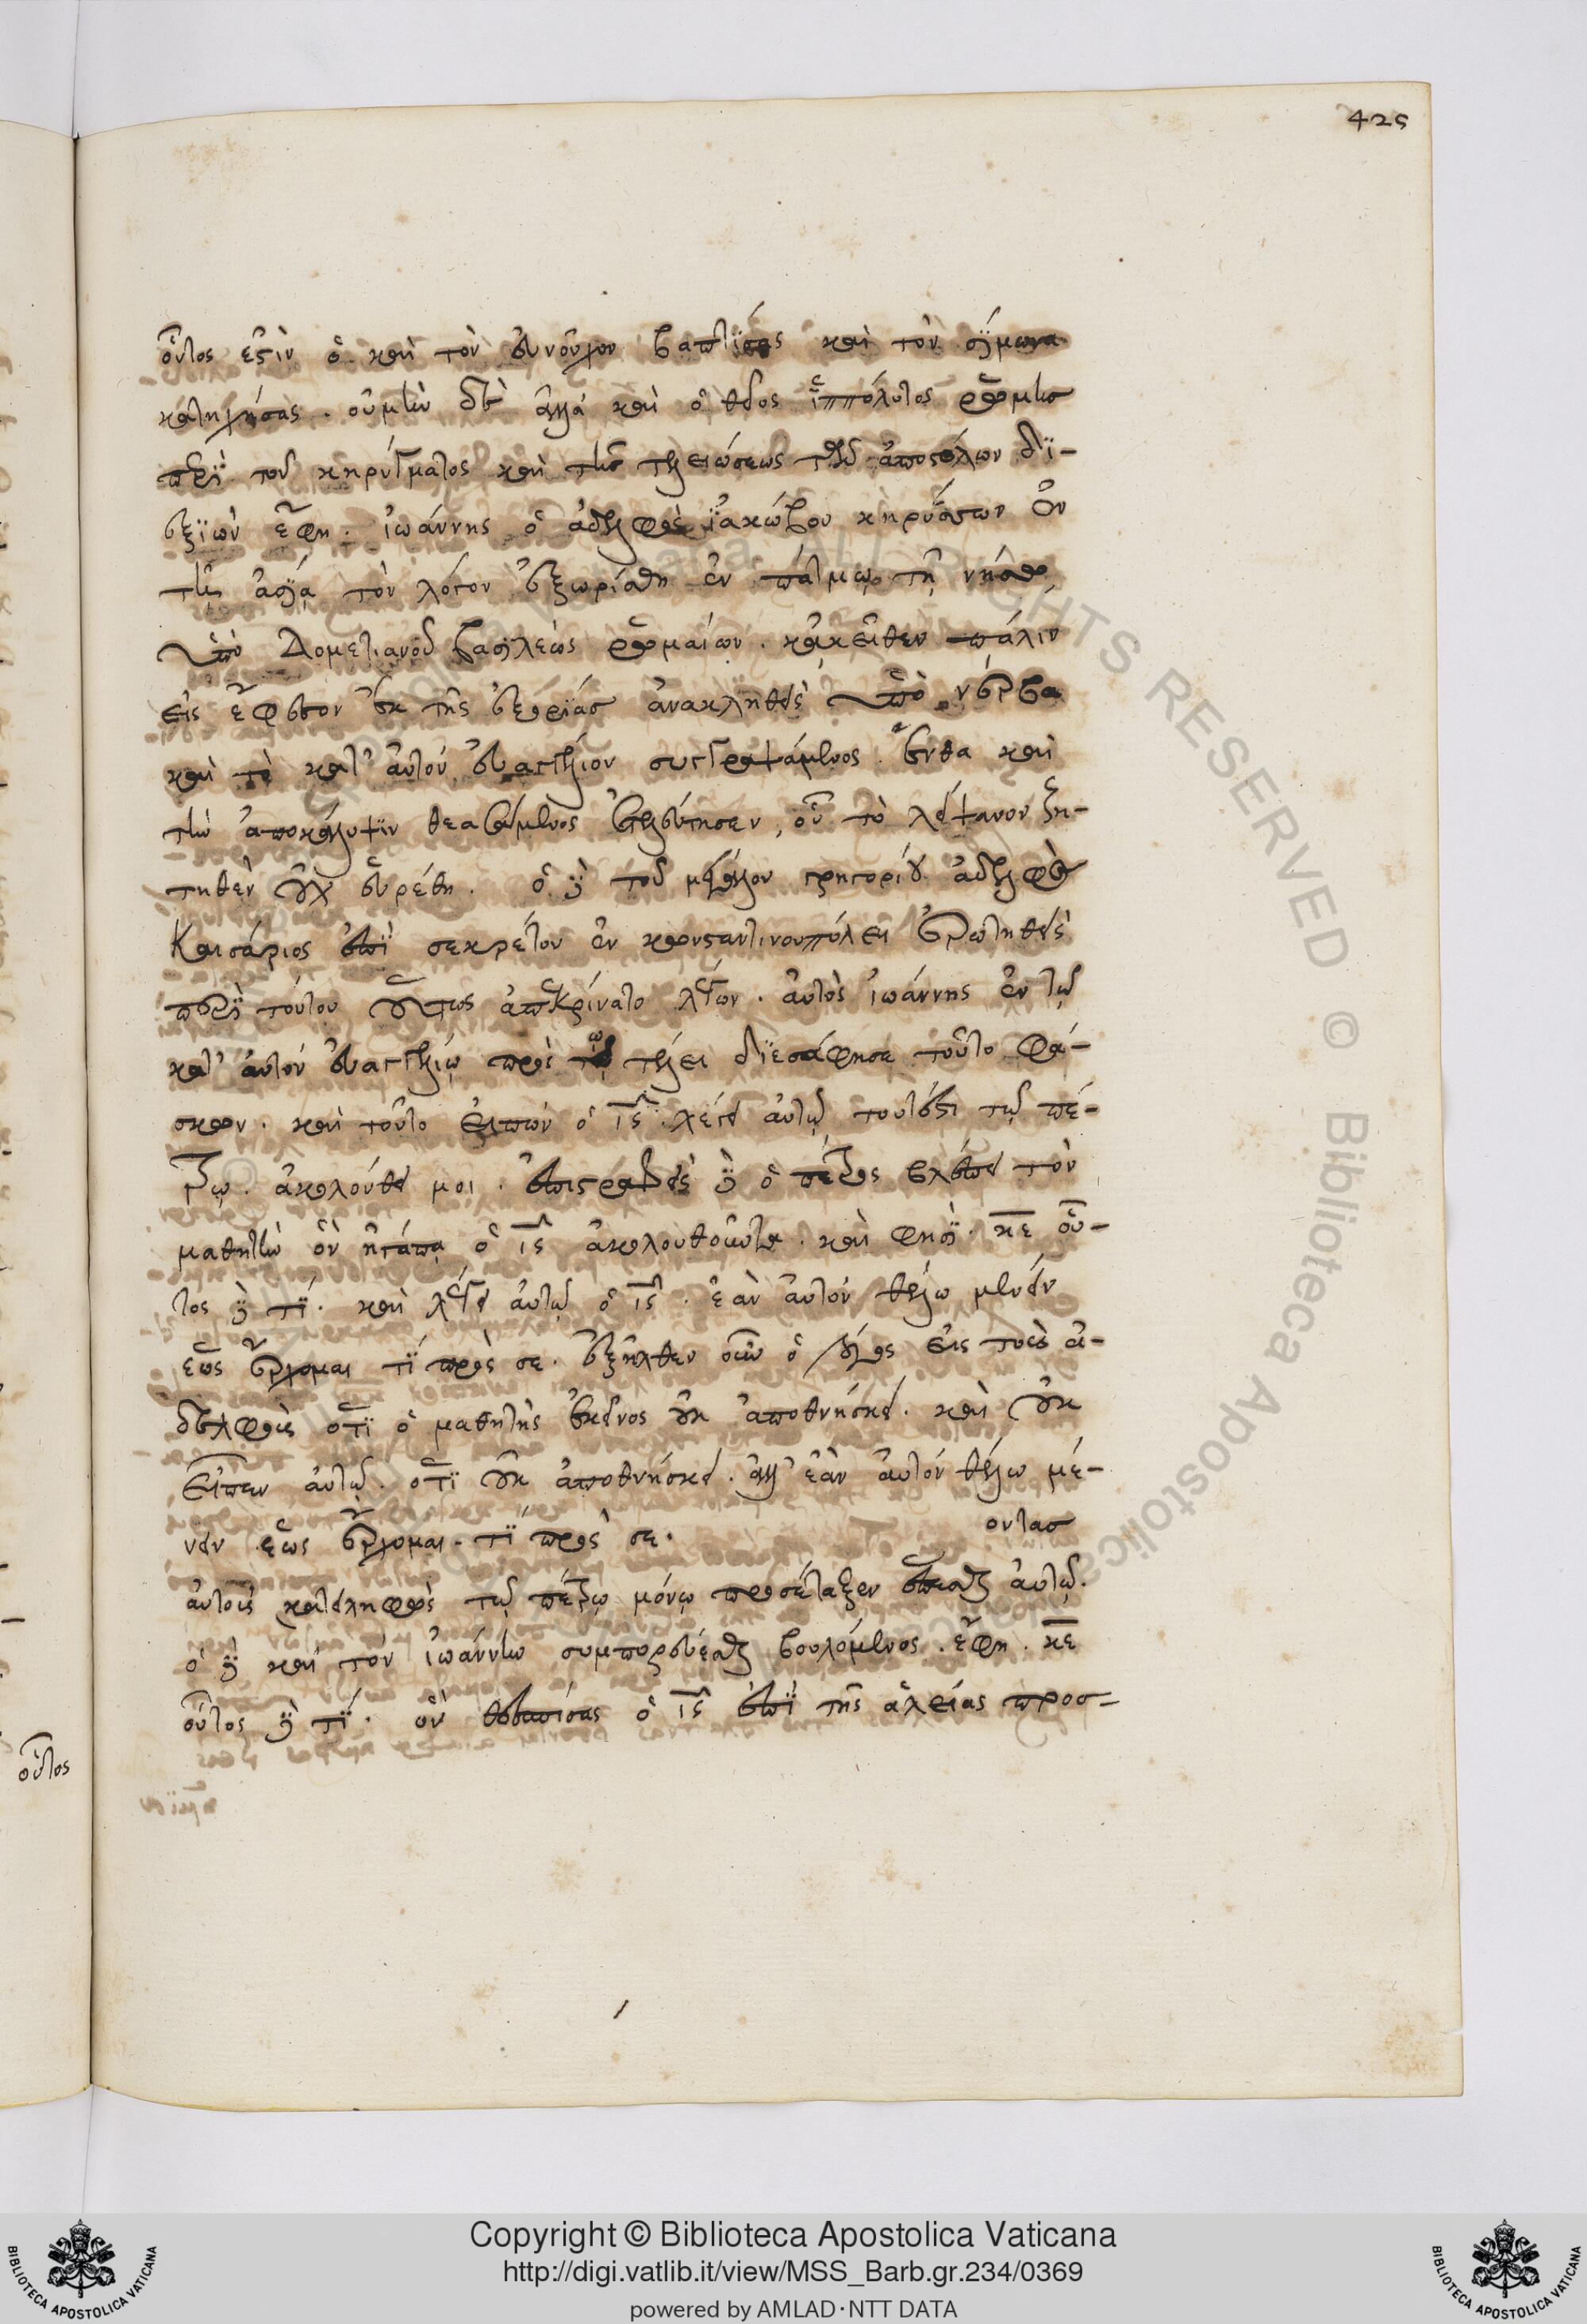 425
οὗτος ἐστὶν ὁ καὶ τὸν εὐνοῦχον βαπτίσας καὶ τὸν σίμωνα
κατηχήσας. οὐ μὴν δὲ ἀλλὰ καὶ ὁ θεῖος ἱππόλυτος ῥώμης
περὶ τοῦ κηρύγματος καὶ τῆς τελειώσεως τῶν ἀποστόλων δι-
εξιὼν ἔφη. ἰωάννης ὁ ἀδελφὸς ἰακώβου κηρύσσων ἐν
τῇ ἀσίᾳ τὸν λόγον ἐξωρίσθη ἐν πάτμῳ τῇ νήσῳ
ὑπὸ Δομετιανοῦ βασιλέως ῥωμαίων. κἀκεῖθεν πάλιν
εἰς ἔφεσον ἐκ τῆς ἐξορίας ἀνακληθεὶς ὑπὸ νέρβα
καὶ τὸ κατ' αὐτὸν εὐαγγέλιον συγγραψάμενος. ἔνθα καὶ
τὴν ἀποκάλυψιν θεασάμενος ἐτελεύτησεν, οὗ τὸ λείψανον ζη-
τηθὲν οὐχ εὑρέθη. ὁ δὲ τοῦ μεγάλου γρηγορίου ἀδελφὸς
Καισάριος ἐπὶ σεκρέτου ἐν κωνσταντινουπόλει ἐρωτηθεὶς
περὶ τούτου οὕτως ἀπεκρίνατο λέγων. αὐτὸς ἰωάννης ἐν τῷ
κατ' αὐτὸν εὐαγγελίῳ πρὸς τῷ τέλει διεσάφησε τοῦτο φά-
σκων. καὶ τοῦτο εἰπὼν ὁ ις λέγει αὐτῷ τουτέστι τῷ πέ-
τρῳ. ἀκολούθει μοι. ἐπιστραφεὶς δὲ ὁ πέτρος βλέπει τὸν
μαθητὴν ὃν ἠγάπα ὁ ις ἀκολουθοῦντα. καὶ φησὶ. κε οὗ-
τος δὲ τί. καὶ λέγει αὐτῷ ὁ ις. ἐὰν αὐτὸν θέλω μένειν
ἕως ἔρχομαι τί πρὸς σε. ἐξῆλθεν οὖν ὁ λόγος εἰς τοὺς ἀ-
δελφοὺς ὅτι ὁ μαθητὴς ἐκεῖνος οὐκ ἀποθνήσκει. καὶ οὐκ
εἶπεν αὐτῷ. ὅτι οὐκ ἀποθνήσκει. ἀλλ' ἐὰν αὐτὸν θέλω μέ-
νειν ἕως ἔρχομαι. τί πρὸς σε.
οντας
αὐτοὺς κατειληφὼς τῷ πέτρῳ μόνῳ προσέταξεν ἕπεσθαι αὐτῷ.
ὁ δὲ καὶ τὸν ἰωάννην συμπορεύεσθαι βουλόμενος. ἔφη. κε
οὗτος δὲ τί. ὃν θεσπίσας ὁ ις ἐπὶ τῆς ἁλείας προσ-
οὗτος
Copyright © Biblioteca Apostolica Vaticana
http://digi.vatlib.it/view/MSS_Barb.gr.234/0369
powered by AMLAD·NTT DATA